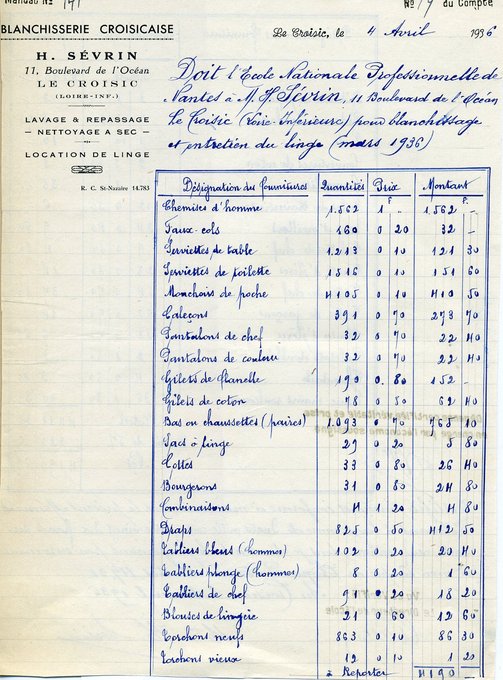 Mandat N° 141
N° 19 du Compte
BLANCHISSERIE CROISICAISE
H. SÉVRIN
11, Boulevard de l'Océan
LE CROISIC
(LOIRE-INF.)
LAVAGE & REPASSAGE
— NETTOYAGE A SEC —
LOCATION DE LINGE
R. C. St-Nazaire 14.783
Le Croisic, le 4 Avril 1936
Doit l'Ecole Nationale Professionnelle de
Nantes à M. H. Sévrin, 11 Boulevard de l'Océan
Le Croisic (Loire-Inférieure) pour blanchissage
et entretien du linge (mars 1936)
Désignation des Fournitures Quantités Prix Montant
F. F.
Chemises d'homme 1.562 1 - 1.562 -
Faux-cols 160 0 20 32 -
Serviettes de table 1.213 0 10 121 30
Serviettes de toilette 1516 0 10 151 60
Mouchoirs de poche 4105 0 10 410 50
Caleçons 391 0 70 273 70
Pantalons de chef 32 0 70 22 40
Pantalons de couleur 32 0 70 22 40
Gilets de flanelle 190 0. 80 152 -
Gilets de coton 78 0 80 62 40
Bas ou chaussettes (paires) 1.093 0 70 765 10
Sacs à linge 29 0 20 5 80
Cottes 33 0 80 26 40
Bourgerons 31 0 80 24 80
Combinaisons 4 1 20 4 80
Draps 825 0 50 412 50
Tabliers bleus (hommes) 102 0 20 20 40
Tabliers plonge (hommes) 8 0 20 1 60
Tabliers de chef 91 0 20 18 20
Blouses de lingère 21 0 60 12 60
Torchons neufs 863 0 10 86 30
Torchons vieux 12 0 10 1 20
à Reporter 4190